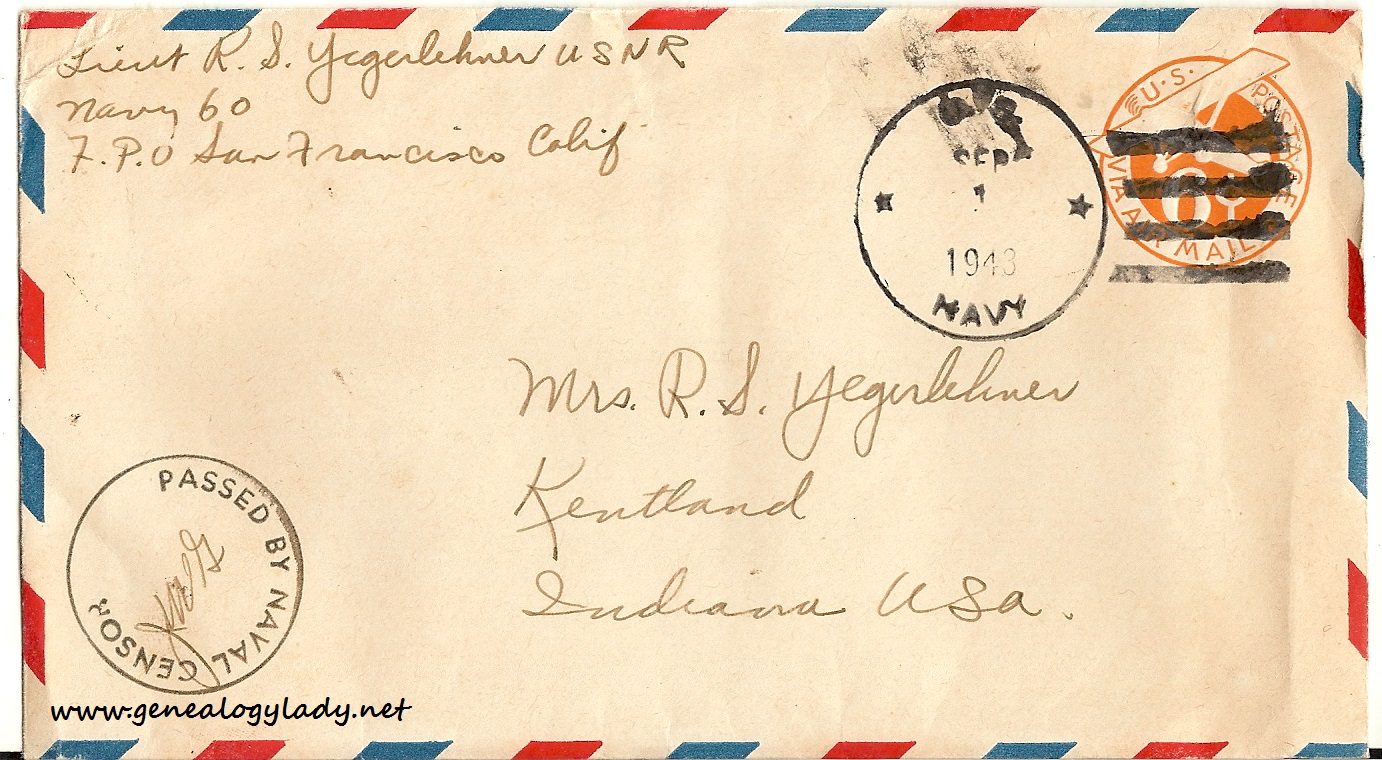 Lieut R. S. Yegerlehner USNR
Navy 60
F.P.O San Francisco Calif
U.S. POSTAGE
6¢
VIA AIR MAIL
SEP
1
1943
NAVY
Mrs. R. S. Yegerlehner
Kentland
Indiana USA.
PASSED BY NAVAL CENSOR
www.genealogylady.net